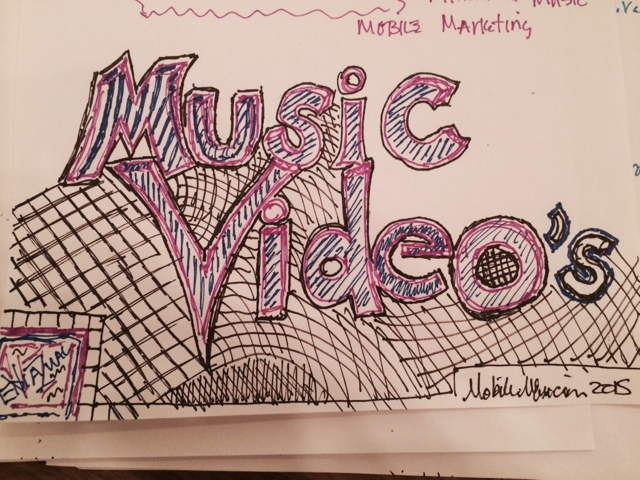 MUSIC
MOBILE MARKETING
MUSIC
VIDEO'S
Mobile Musician 2015